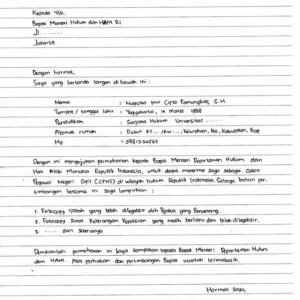 Kepada Yth.
Bapak Menteri Hukum dan HAM RI
Jl. ........
Jakarta
Dengan hormat,
Saya yang bertanda tangan di bawah ini :
Nama : Nugroho Cipta Pamungkas, S.H.
Tempat / tanggal lahir : Yogyakarta, 14 Maret 1988
Pendidikan : Sarjana Hukum Universitas .....
Alamat rumah : Dusun Rt.../Rw..., Kelurahan, Kec, Kabupaten, Prop
Hp : 0881234569
Dengan ini mengajukan permohonan kepada Bapak Menteri Departemen Hukum dan
Hak Asasi Manusia Republik Indonesia, untuk dapat menerima saya sebagai Calon
Pegawai Negeri Sipil (CPNS) di wilayah hukum Republik Indonesia. Sebagai bahan per-
timbangan bersama ini saya lampirkan :
1. Fotocopy Ijazah yang telah dilegalisir oleh Pejabat yang Berwenang.
2. Fotocopy Surat Keterangan Kepolisian yang masih berlaku dan telah dilegalisir.
3. .... dan seterusnya.
Demikianlah permohonan ini saya sampaikan kepada Bapak Menteri Departemen Hukum
dan HAM. Atas perhatian dan pertimbangan Bapak ucapkan terimakasih.
Hormat Saya,